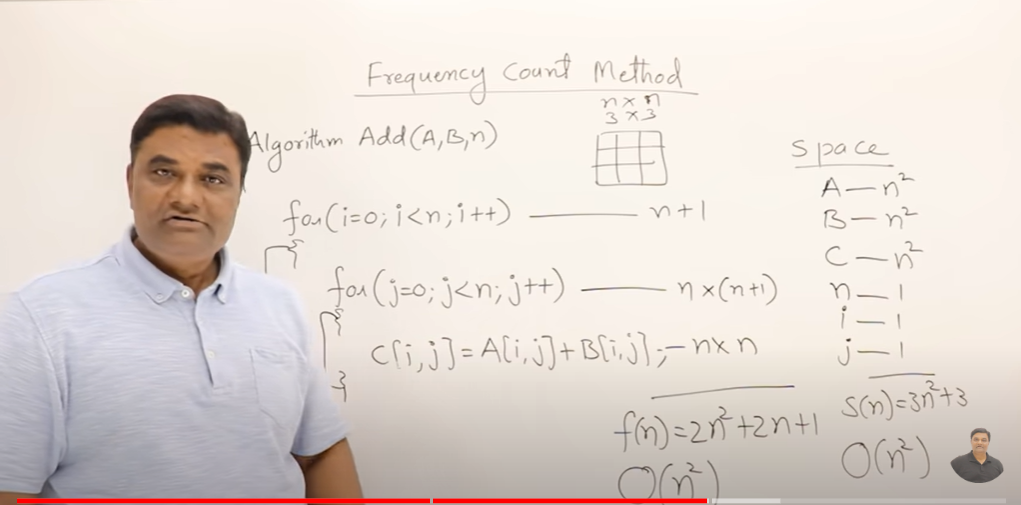 Frequency Count Method
n × n
3 × 3
Algorithm Add(A,B,n)
for(i=0; i<n; i++) —— n+1
{
for(j=0; j<n; j++) —— n×(n+1)
{
C[i,j]=A[i,j]+B[i,j];— n×n
}
f(n)=2n²+2n+1
O(n²)
Space
A — n²
B — n²
C — n²
n — 1
i — 1
j — 1
S(n)=3n²+3
O(n²)